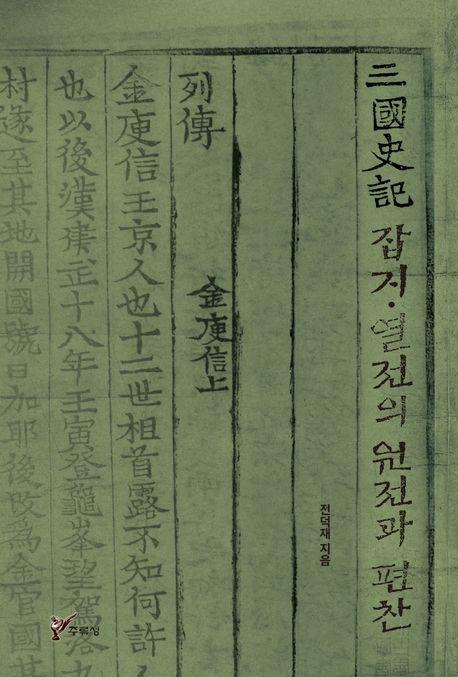 三國史記 잡지·열전의 원전과 편찬
전덕재 지음
列傳 金庾信上
金庾信王京人也十二世祖首露不知何許
也以後漢建武十八年壬寅登龜峯望駕洛九
村遂至其地開國號曰加耶後改爲金官國其
주류성